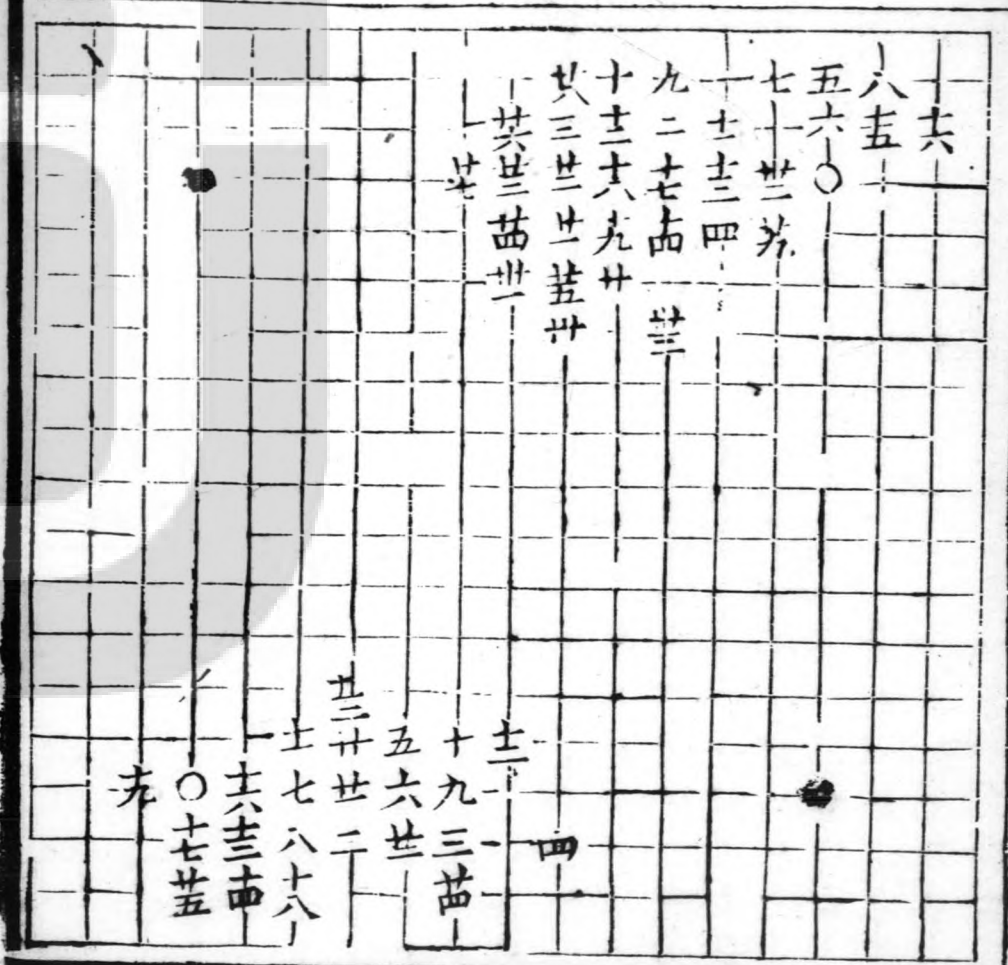 十六
八十五
五六〇
七十卅二
十一十三四
九二十七十四卅三
十十二十八十九廿
廿八三廿二廿一廿五卅
廿六廿三廿四卅一
廿七
四
十二一
十九三廿四
五六廿二
廿三廿廿一二
十一七八十八
十六十三十四
〇十七廿五
十九